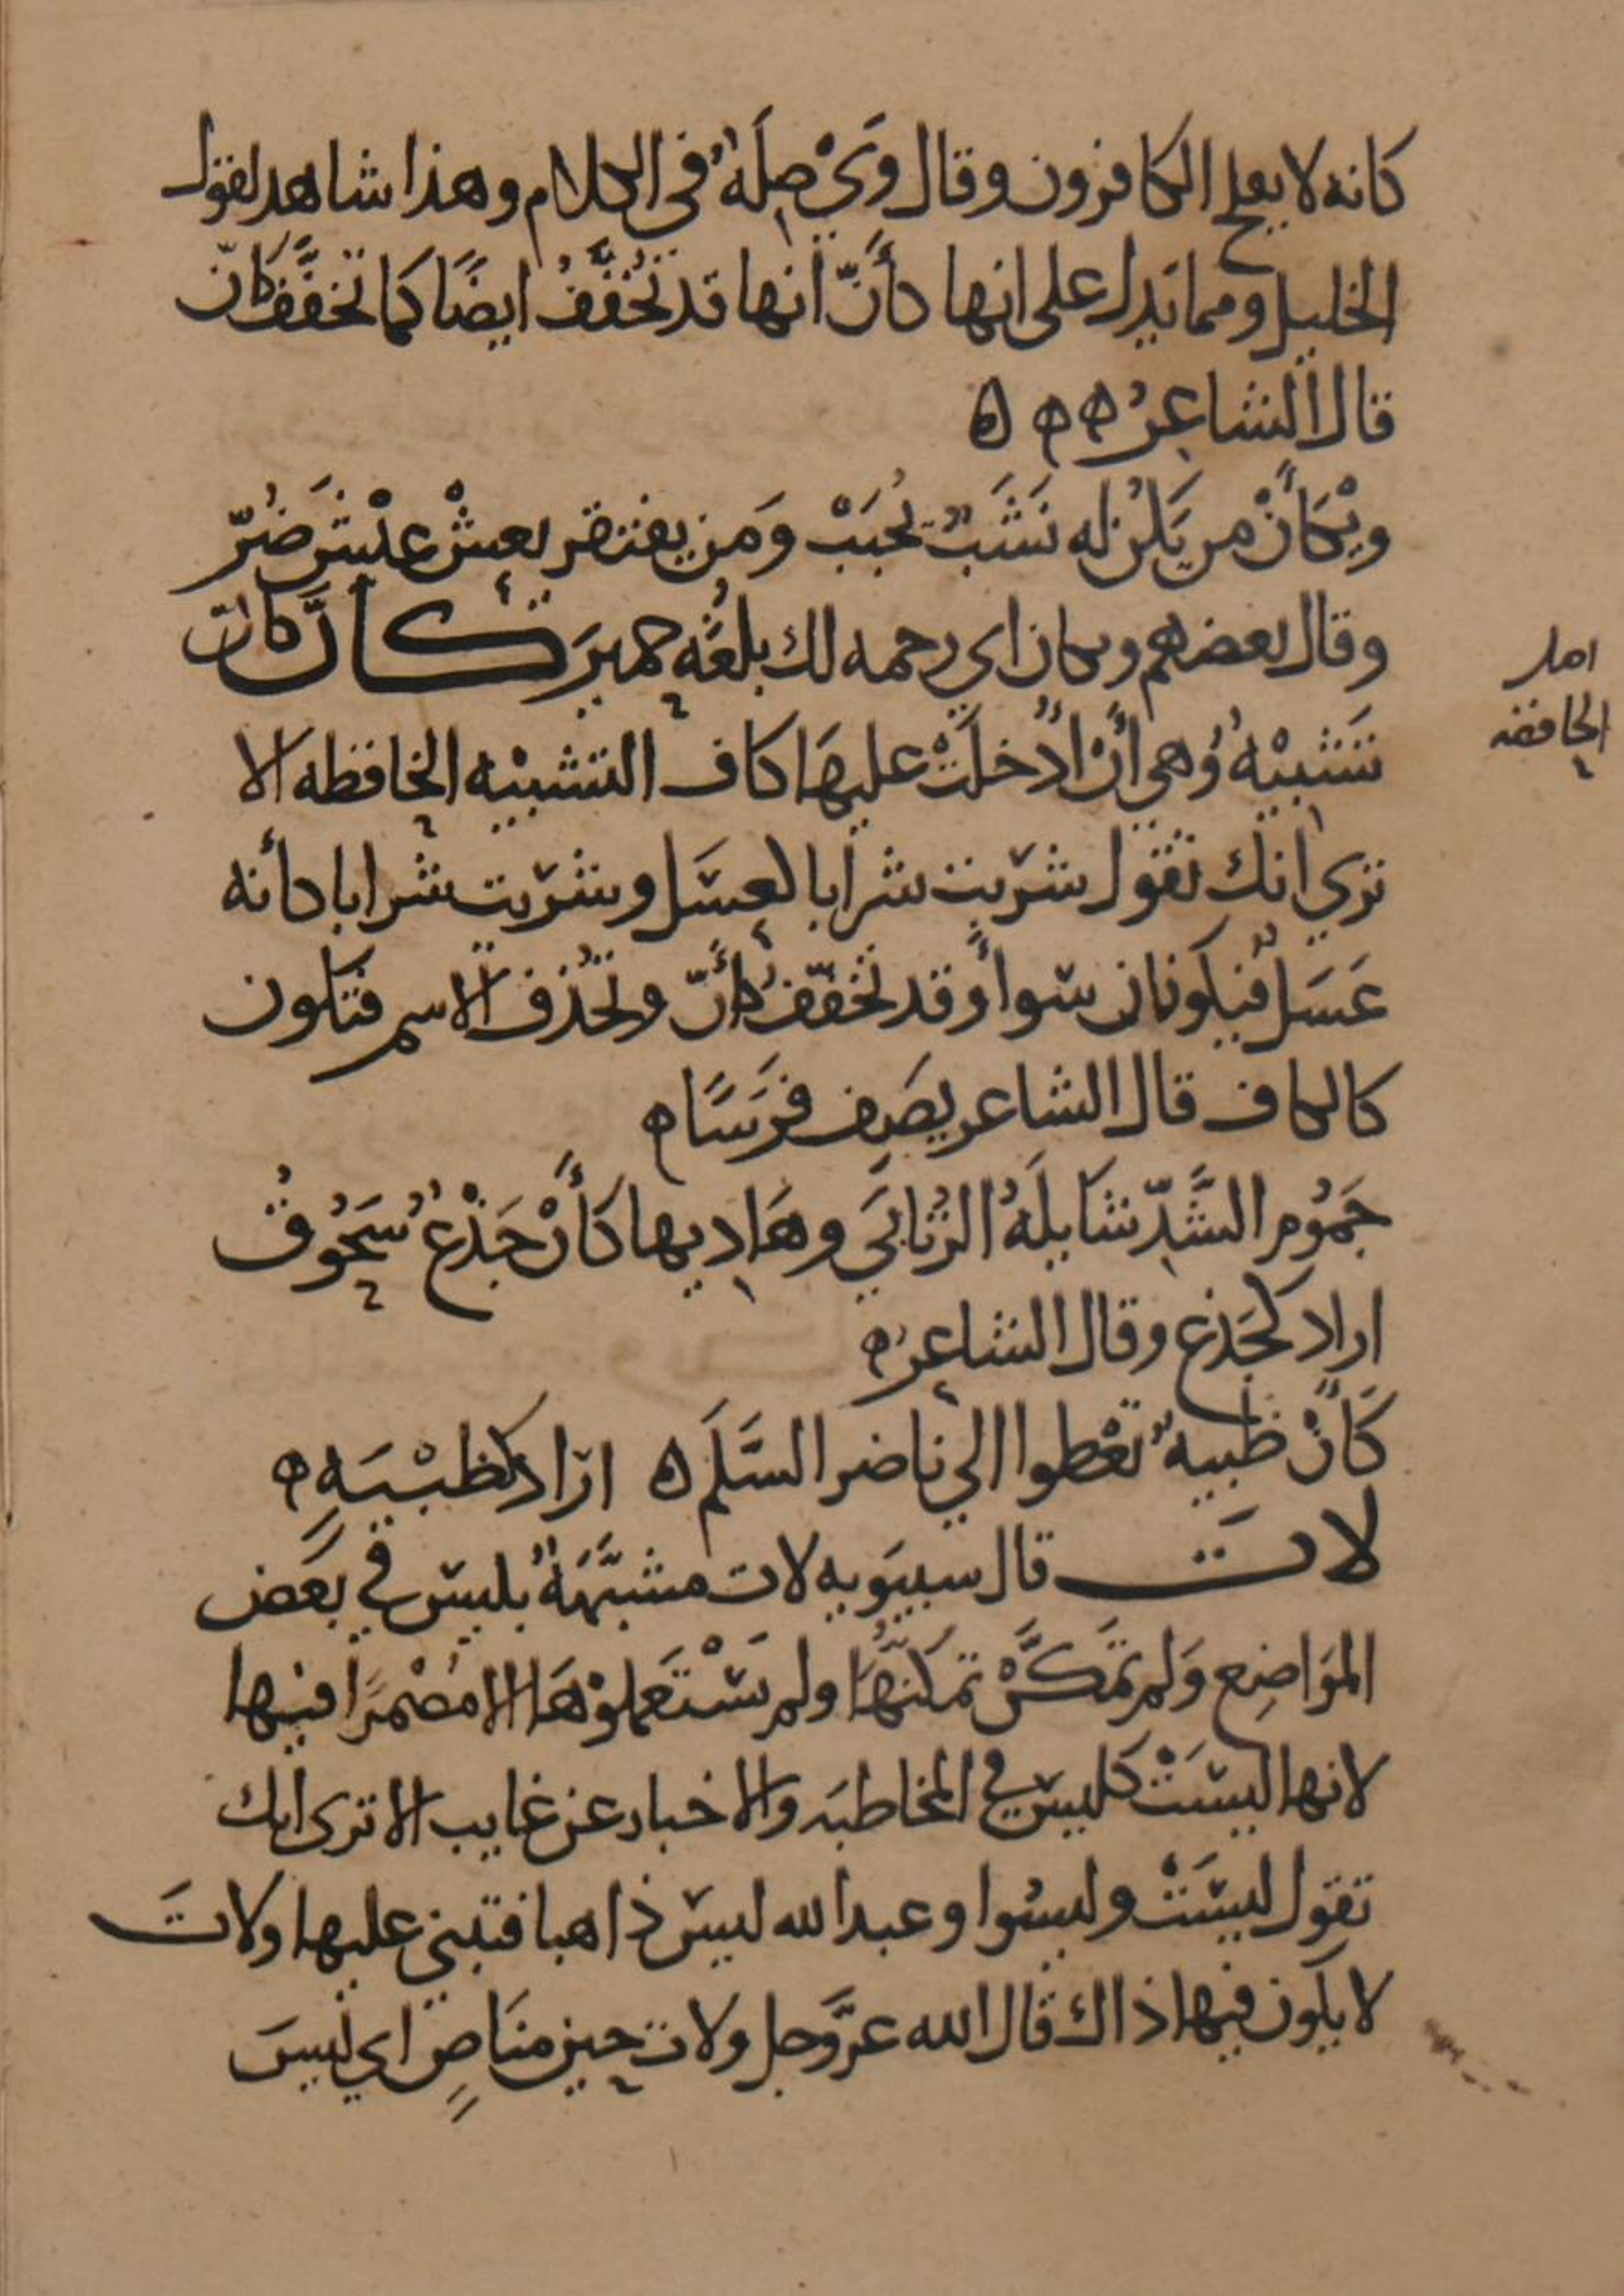 كانه لا يفلح الكافرون وقال وَيْ صِلَةٌ في الكلام وهذا شاهد لقول
الخليل ومما يدل على انها كأنّ انها قد تُخَفَّفُ ايضًا كما تخفَّف كانّ
قال الشاعرُ ه ه ه
ويْكَأَنْ من يَكُنْ له نَشَبٌ يُحْبَبْ وَمَن يفتقر يعِشْ عَيْشَ ضُرّ
وقال بعضهم ويكان اي رحمه لك بلغَةِ حِمْيرَ كأنَّ كانّ
تَشْبِيْهٌ وهي أَنْ اُدْخلَتْ عليهَا كاف التشبيه الخافظه الا
ترى انك تقول شرّبت شرابا كعسَل وشرّبت شرابا كأنه
عَسَلٌ فيكونان سوآءً وقد تُخفّفُ كأنّ وتُحْذف الاسم فتكون
كالكاف قال الشاعر يصَف فرَسًا ه
جَمُوم الشَّدِّ شَايلَةُ الذُّنَابَي وهَادِيها كأَنْ جَذْعٌ سَحُوقُ
اراد كجَذع وقال الشاعرُ ه
كَأنْ ظبيةٌ تعْطوا الي ناضر السَّلَم ه ارَاد كظبْيَهٍ ه
لاتَ قال سيبَويه لات مشبَّهَةٌ بليس في بَعَض
المَوَاضِع وَلم تمَكَّنْ تمكنَّهَا ولم يَسْتَعملوْهَا الا مُضْمَرًا فيها
لانها ليسَتْ كليس في المخاطبَه والاخبار عن غايب الا ترى انك
تقول ليسَتْ وليسُوا وعبد الله ليسَ ذاهبا فتبني عليها ولاتَ
لا يكون فيها ذاك قال الله عزَّوجل ولات حين منَاصٍ اي ليسَ
اصل
الخافضه